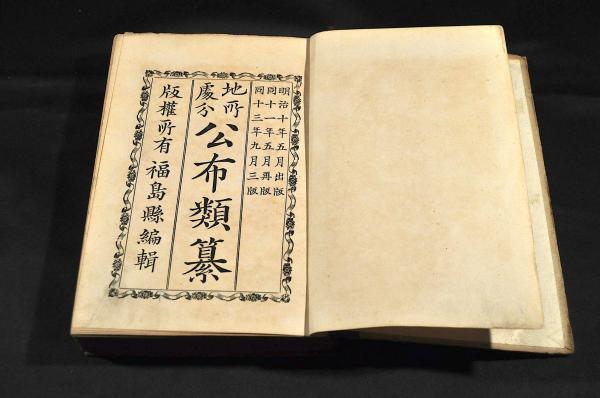 明治十年五月出版
同十一年五月再版
同十三年九月三版
地所
處分
公布類纂
版權所有
福島縣編輯